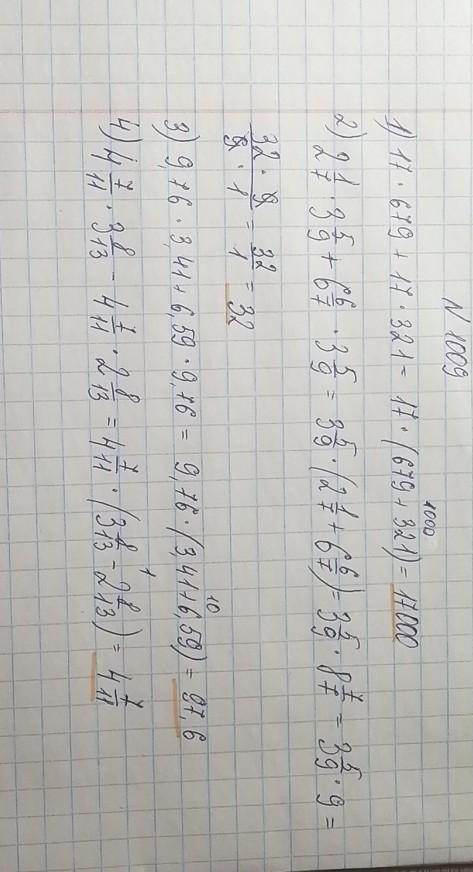 N 1009
1) 17 · 679 + 17 · 321 = 17 · (679 + 321) = 17000
1000
2) 2 1/7 · 3 5/9 + 6 6/7 · 3 5/9 = 3 5/9 · (2 1/7 + 6 6/7) = 3 5/9 · 8 7/7 = 3 5/9 · 9 =
32 · 9 / 9 · 1 = 32/1 = 32
10
3) 9,76 · 3,41 + 6,59 · 9,76 = 9,76 · (3,41 + 6,59) = 97,6
1
4) 4 7/11 · 3 8/13 - 4 7/11 · 2 8/13 = 4 7/11 · (3 8/13 - 2 8/13) = 4 7/11